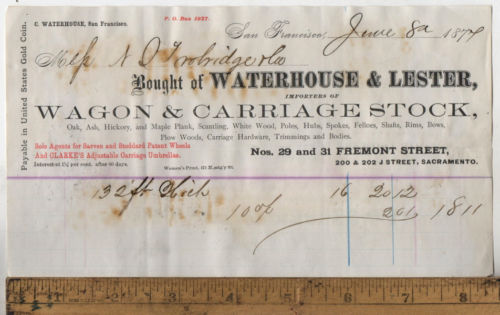 P. O. Box 1927.
C. WATERHOUSE, San Francisco.
San Francisco, June 8 1874
Mess N D Trowbridge & Co
Bought of WATERHOUSE & LESTER,
IMPORTERS OF
WAGON & CARRIAGE STOCK,
Oak, Ash, Hickory, and Maple Plank, Scantling, White Wood, Poles, Hubs, Spokes, Felloes, Shafts, Rims, Bows,
Plow Woods, Carriage Hardware, Trimmings and Bodies.
Payable in United States Gold Coin.
Sole Agents for Sarven and Stoddard Patent Wheels
And CLARKE'S Adjustable Carriage Umbrellas.
Interest at 1½ per cent. after 60 days.
Nos. 29 and 31 FREMONT STREET,
200 & 202 J STREET, SACRAMENTO.
132 ft Hick 16 20 12
10% 2 01 18 11
1 2 3 4 5 6 7 8